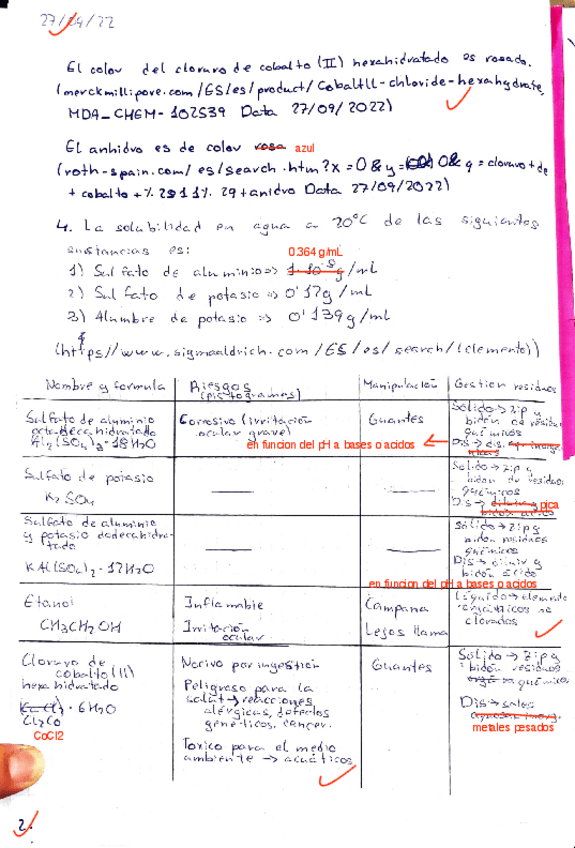 27/09/22
El color del cloruro de cobalto (II) hexahidratado es rosado.
(merckmillipore.com/ES/es/product/CobaltII-chloride-hexahydrate,
MDA_CHEM-102539 Data 27/09/2022)
El anhidro es de color rosa azul
(roth-spain.com/es/search.htm?x=0&y=0&q=cloruro+de
+cobalto+%2811%29+anidro Data 27/09/2022)
4. La solubilidad en agua a 20°C de las siguientes
sustancias es:
0.364 g/mL
1) Sulfato de aluminio => 1·10⁻⁵ g/mL
2) Sulfato de potasio => 0'12g/mL
3) Alumbre de potasio => 0'139g/mL
(https//www.sigmaaldrich.com/ES/es/search/(elemento))
Nombre y formula Riesgos (pictogramas) Manipulación Gestion residuos
Sulfato de aluminio octadecahidratado Al2(SO4)3·18H2O
Corrosivo (irritación ocular grave)
Guantes
Sólido → zip y bidón de residuos químicos
Dis →
en funcion del pH a bases o acidos
Sulfato de potasio
K2SO4
Sólido → zip y bidón de residuos químicos
Dis → pica
Sulfato de aluminio y potasio dodecahidratado
KAl(SO4)2·12H2O
Sólido → zip y bidón residuos químicos
Dis → diluir y bidón ácido
en funcion del pH a bases o acidos
Etanol
CH3CH2OH
Inflamable
Irritación ocular
Campana
Lejos llama
Líquido → no clorados
Cloruro de cobalto (II) hexahidratado
·6H2O
Cl2Co
CoCl2
Nocivo por ingestión
Peligroso para la salud → reacciones alérgicas, defectos genéticos, cancer.
Toxico para el medio ambiente → acuáticos
Guantes
Sólido → zip y bidón residuos químicos
Dis → sales
metales pesados
2.